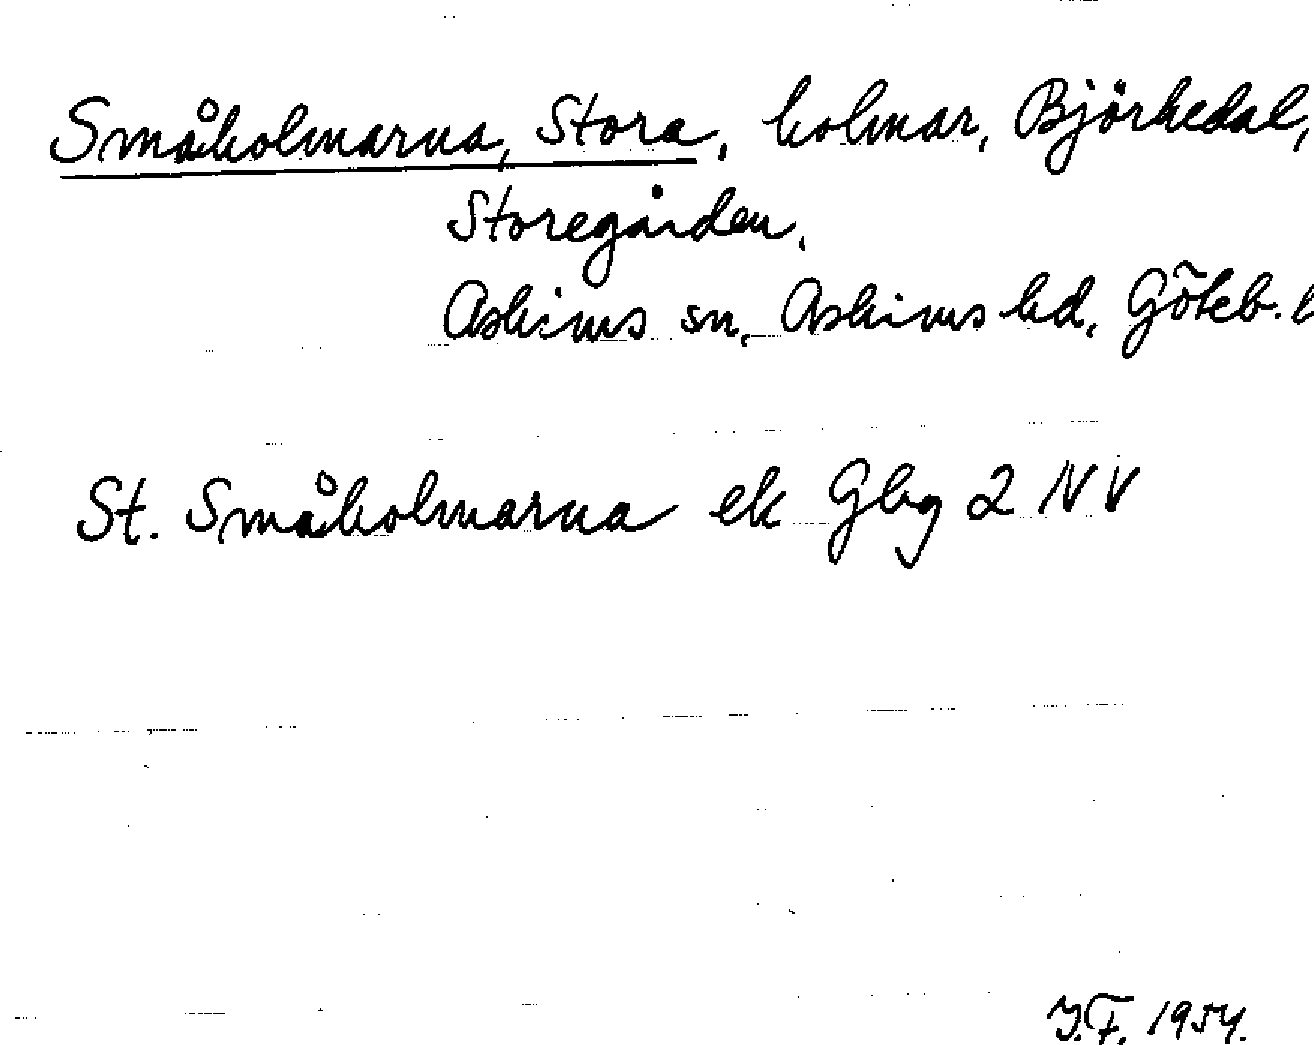 Småholmarna, Stora, holmar, Björkedal,
Storegården.
Askims sn, Askims hd, Göteb. l
St. Småholmarna ek Gbg 2 NV
J.F. 1954.